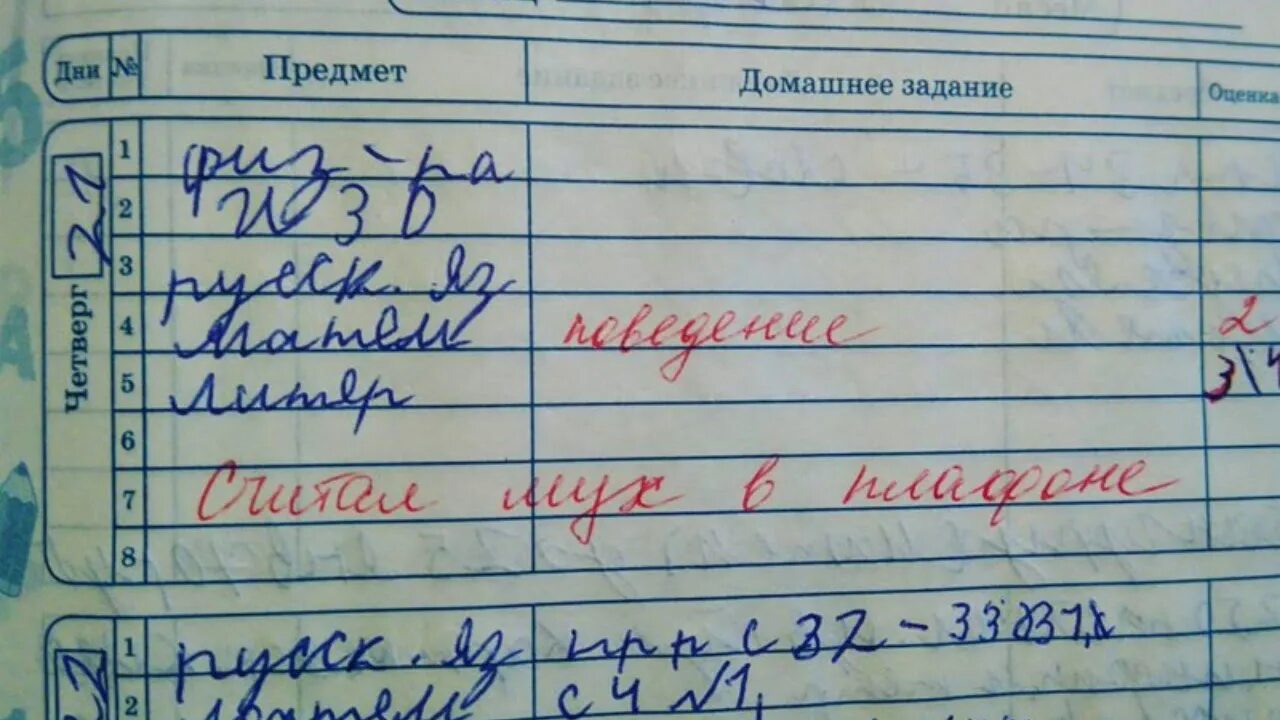 Дни № Предмет Домашнее задание Оценка
Четверг 21
1 физ-ра
2 ИЗО
3 русск. яз
4 матем поведение 2
5 литер 3\4
6
7 Считал мух в плафоне
8
22
1 русск. яз прр с 32-33
2 матем с 4 №1,